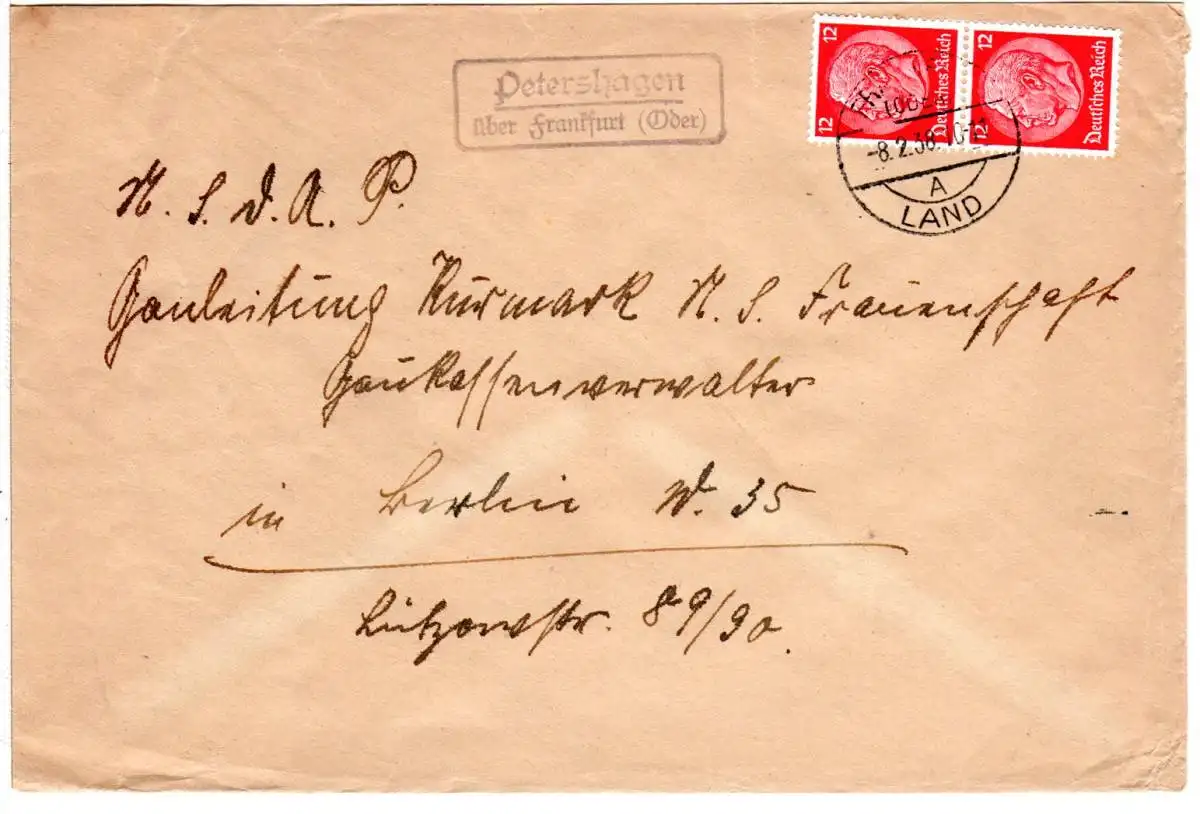 Petershagen
über Frankfurt (Oder)
12 Deutsches Reich 12
12 Deutsches Reich 12
(ODER)
-8.2.38.10-11
A
LAND
N. S. d. A. P.
Gauleitung Kurmark N. S. Frauenschaft
Gaukassenverwalter
in Berlin W. 35
Lützowstr. 89/90.